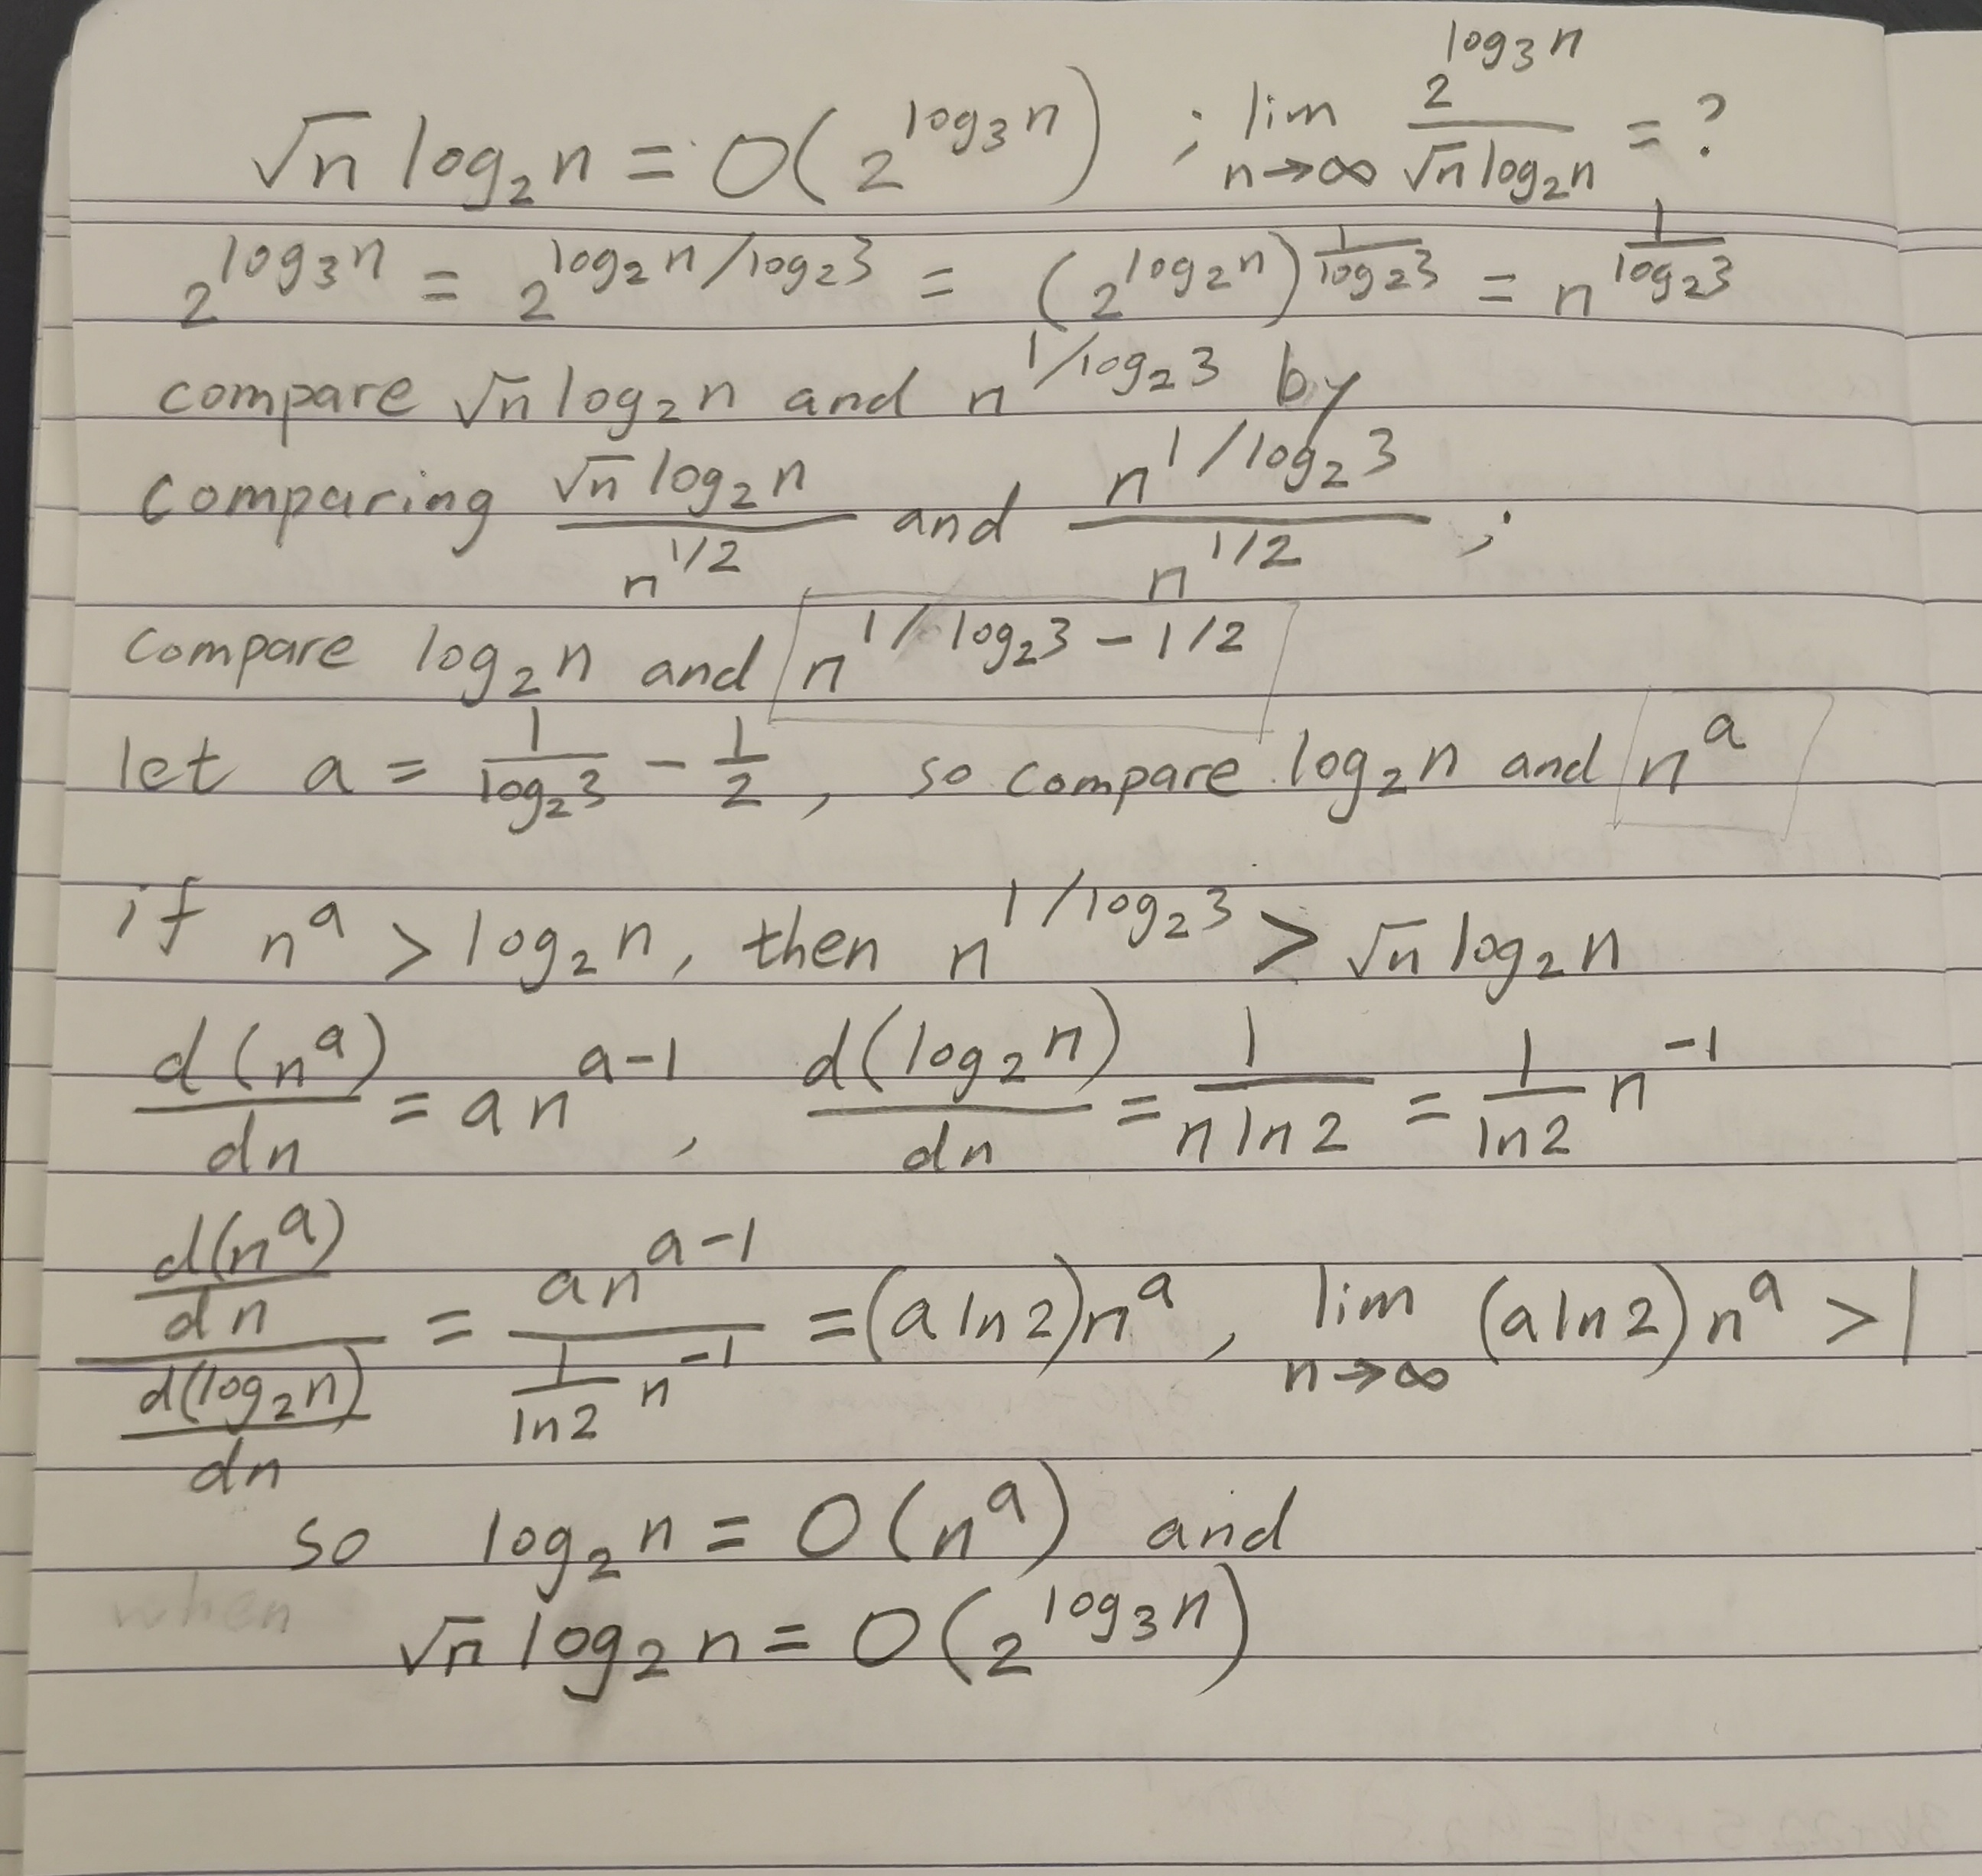 √n log₂n = O(2^(log₃n)) ; lim n→∞ 2^(log₃n) / (√n log₂n) = ?
2^(log₃n) = 2^(log₂n/log₂3) = (2^(log₂n))^(1/log₂3) = n^(1/log₂3)
compare √n log₂n and n^(1/log₂3) by
comparing (√n log₂n)/(n^(1/2)) and (n^(1/log₂3))/(n^(1/2)) ;
compare log₂n and n^(1/log₂3 − 1/2)
let a = 1/(log₂3) − 1/2 , so compare log₂n and n^a
if n^a > log₂n, then n^(1/log₂3) > √n log₂n
d(n^a)/dn = an^(a−1) , d(log₂n)/dn = 1/(n ln2) = (1/ln2) n^(−1)
(d(n^a)/dn)/(d(log₂n)/dn) = (an^(a−1))/((1/ln2) n^(−1)) = (a ln2)n^a , lim n→∞ (a ln2) n^a > 1
so log₂n = O(n^a) and
when
√n log₂n = O(2^(log₃n))